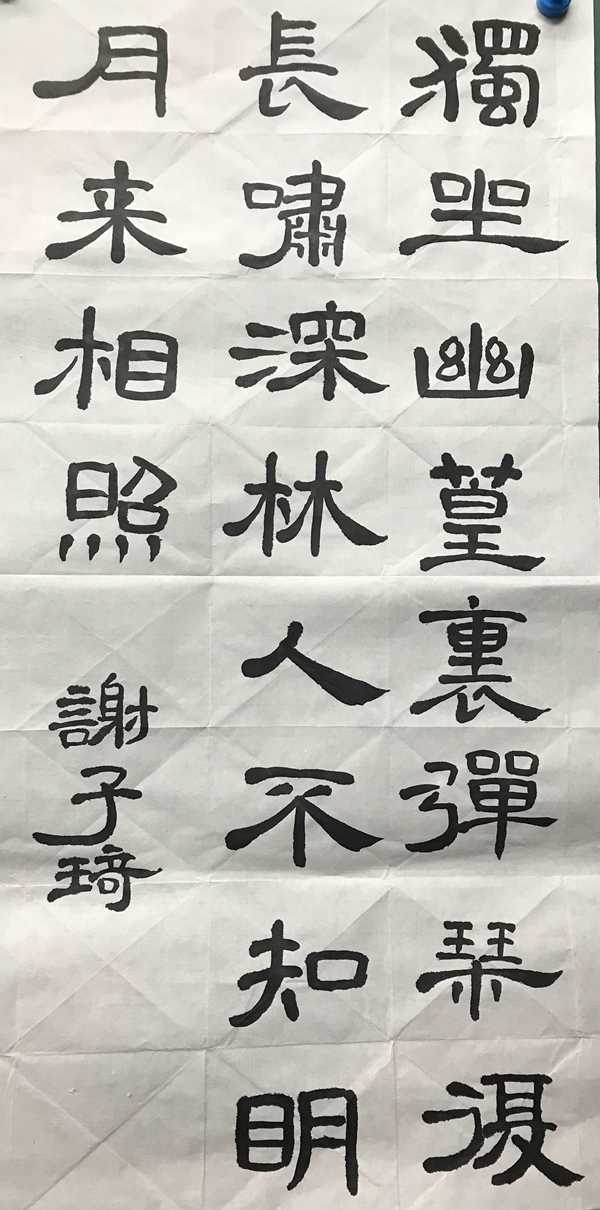 獨坐幽篁裏彈琹復
長嘯深林人不知眀
月来相照
謝子琦